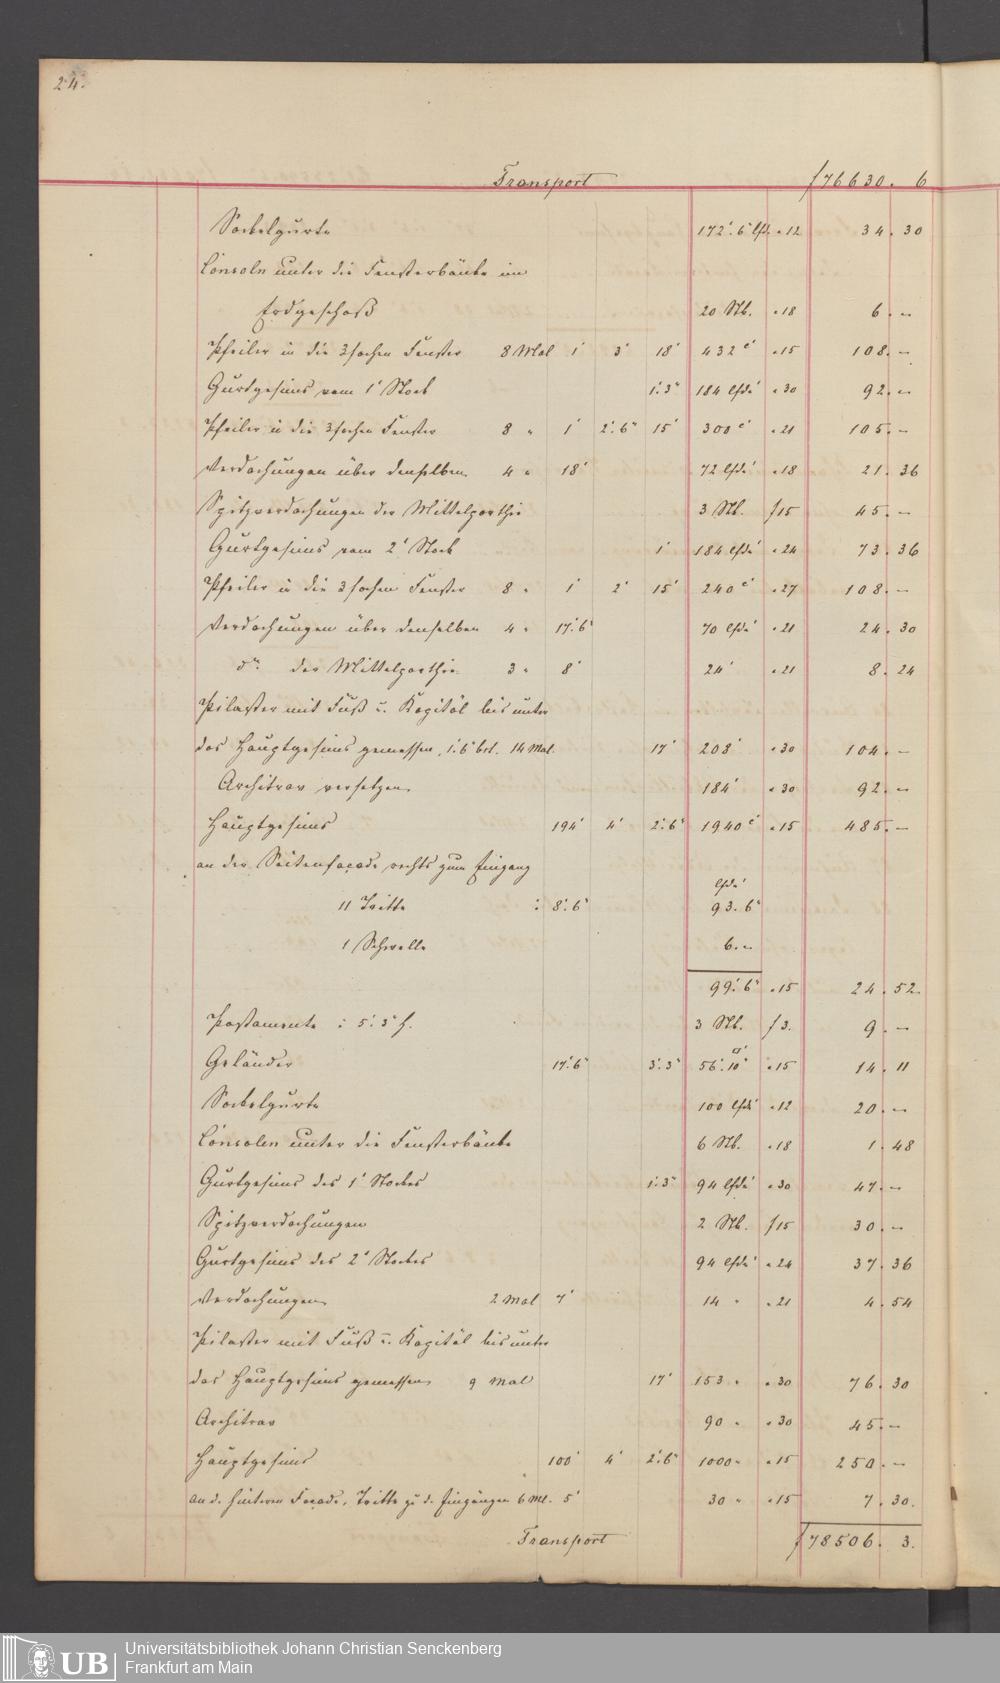 24.
Transport f 76630. 6
Sockelgurte 172'. 6" lfd. " 12 34. 30
Consoln unter die Fensterbänke im
Erdgeschoß 20 Stk. " 18 6. –
Pfeiler in die 3fachen Fenster 8 Mal 1' 3' 18' 432 c' " 15 108. –
Gurtgesims vom 1' Stock 1'. 3" 184 lfde' " 30 92. –
Pfeiler in die 3fachen Fenster 8 " 1' 2'. 6" 15' 300 c' " 21 105. –
Verdachungen über denselben 4 " 18' 72 lfde' " 18 21. 36
Spitzverdachungen der Mittelparthie 3 Stk. f 15 45. –
Gurtgesims vom 2' Stock 1' 184 lfde' " 24 73. 36
Pfeiler in die 3fachen Fenster 8 " 1' 2' 15' 240 c' " 27 108. –
Verdachungen über denselben 4 " 17'. 6" 70 lfde' " 21 24. 30
do. der Mittelparthie 3 " 8' 24' " 21 8. 24
Pilaster mit Fuß u. Kapitäl bis unter
das Hauptgesims gemessen, 1'. 6" brt. 14 Mal. 17' 208' " 30 104. –
Architrav versetzen 184' " 30 92. –
Hauptgesims 194' 4' 2'. 6" 1940 c' " 15 485. –
an der Seitenfaçade, rechts zum Eingang
lfde'
11 Tritte : 8'. 6" 93. 6"
1 Schwelle 6. –
99'. 6" " 15 24. 52.
Postamente : 5'. 3" h. 3 Stk. f 3. 9. –
Geländer 17'. 6" 3'. 3" 56'. 10" □' " 15 14. 11
Sockelgurte 100 lfde' " 12 20. –
Consolen unter die Fensterbänke 6 Stk. " 18 1. 48
Gurtgesims des 1' Stockes 1'. 3" 94 lfde' " 30 47. –
Spitzverdachungen 2 Stk. f 15 30. –
Gurtgesims des 2' Stockes 94 lfde' " 24 37. 36
Verdachungen 2 Mal 7' 14 " " 21 4. 54
Pilaster mit Fuß u. Kapitäl bis unter
das Hauptgesims gemessen 9 Mal 17' 153 " " 30 76. 30
Architrav 90 " " 30 45. –
Hauptgesims 100' 4' 2'. 6" 1000 " " 15 250. –
an d. hintern Façade, Tritte zu d. Eingängen 6 Ml. 5' 30 " " 15 7. 30.
Transport f 78506. 3.
UB Universitätsbibliothek Johann Christian Senckenberg
Frankfurt am Main